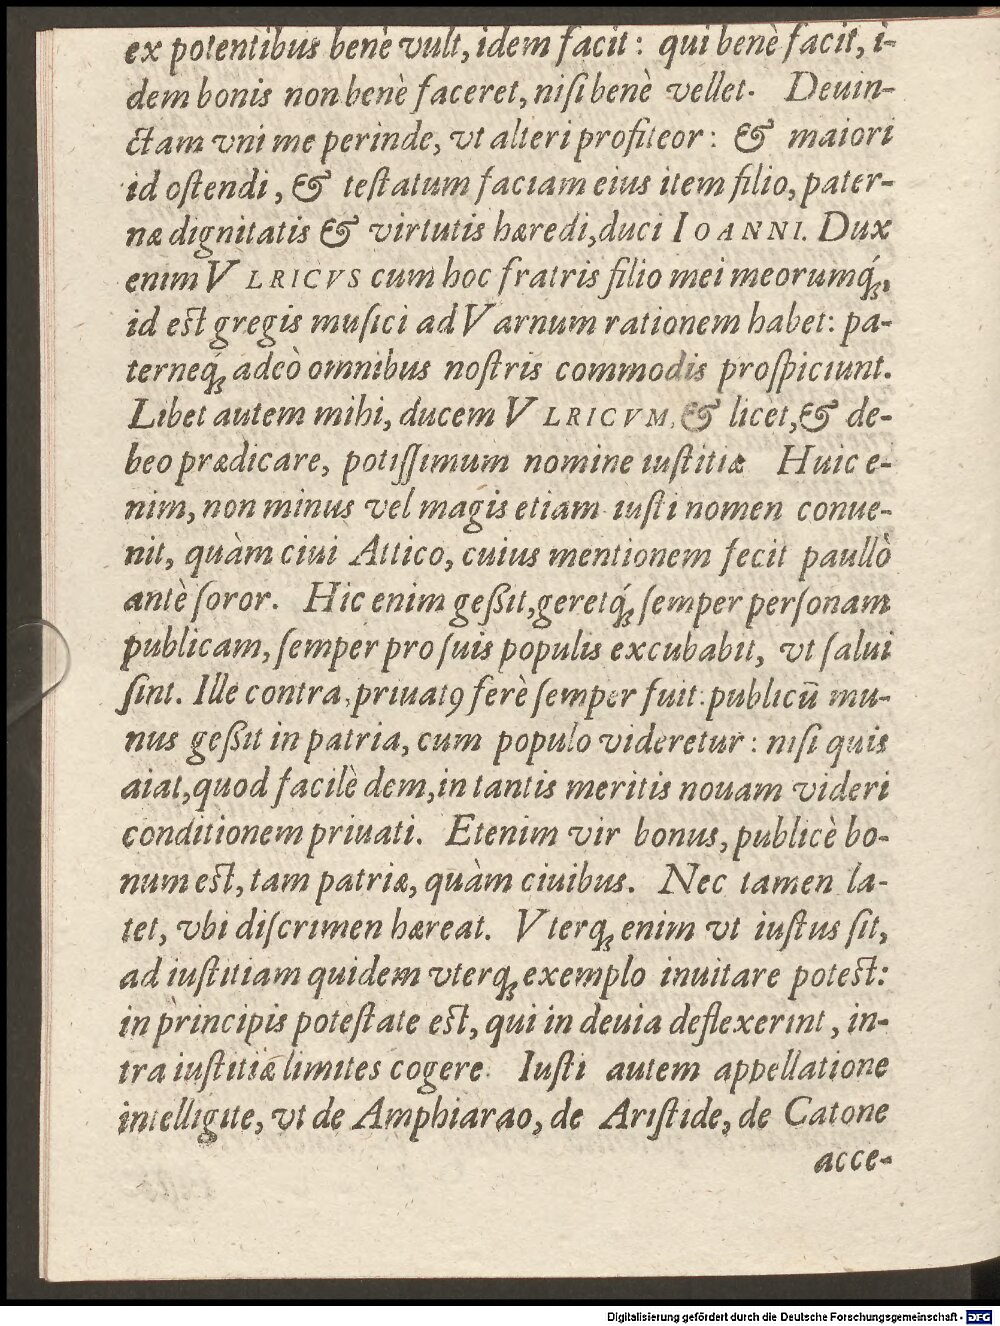 ex potentibus benè vult, idem facit: qui benè facit, i-
dem bonis non benè faceret, nisi benè vellet. Deuin-
ctam vni me perinde, vt alteri profiteor: & maiori
id ostendi, & testatum faciam eius item filio, pater-
næ dignitatis & virtutis hæredi, duci IOANNI. Dux
enim VLRICVS cum hoc fratris filio mei meorumq́;,
id est gregis musici ad Varnum rationem habet: pa-
terneq́; adeò omnibus nostris commodis prospiciunt.
Libet autem mihi, ducem VLRICVM, & licet, & de-
beo prædicare, potissimum nomine iustitiæ Huic e-
nim, non minus vel magis etiam iusti nomen conue-
nit, quàm ciui Attico, cuius mentionem fecit paullò
antè soror. Hic enim geßit, geretq́; semper personam
publicam, semper pro suis populis excubabit, vt salui
sint. Ille contra, priuatꝯ ferè semper fuit: publicū mu-
nus geßit in patria, cum populo videretur: nisi quis
aiat, quod facilè dem, in tantis meritis nouam videri
conditionem priuati. Etenim vir bonus, publicè bo-
num est, tam patriæ, quàm ciuibus. Nec tamen la-
tet, vbi discrimen hæreat. Vterq; enim vt iustus sit,
ad iustitiam quidem vterq; exemplo inuitare potest:
in principis potestate est, qui in deuia deflexerint, in-
tra iustitiæ limites cogere. Iusti autem appellatione
intelligite, vt de Amphiarao, de Aristide, de Catone
acce-
Digitalisierung gefördert durch die Deutsche Forschungsgemeinschaft - DFG